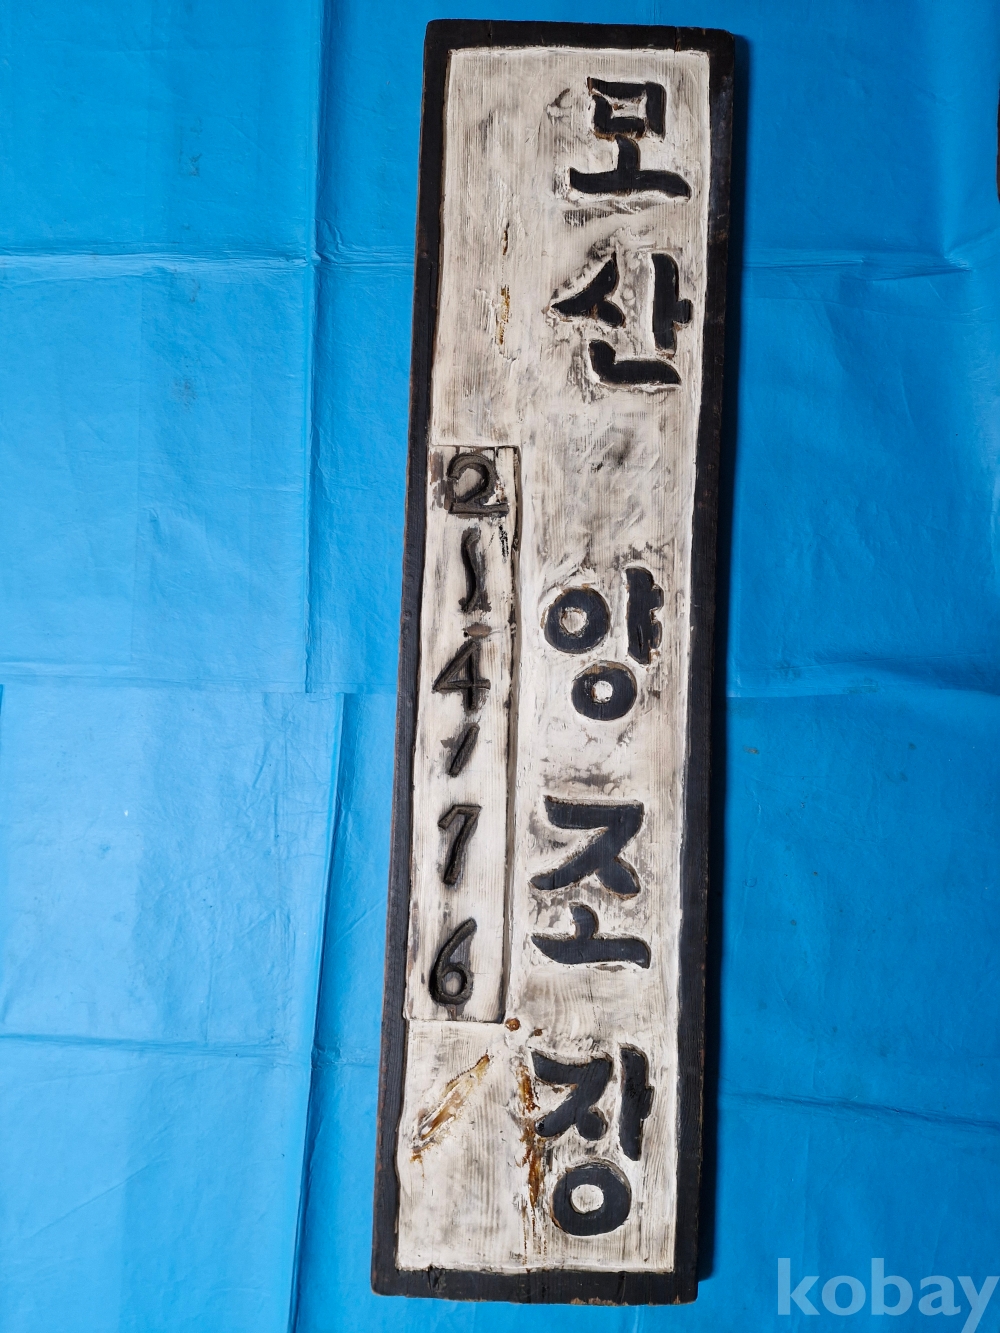 모산 양조장
2-4176
kobay